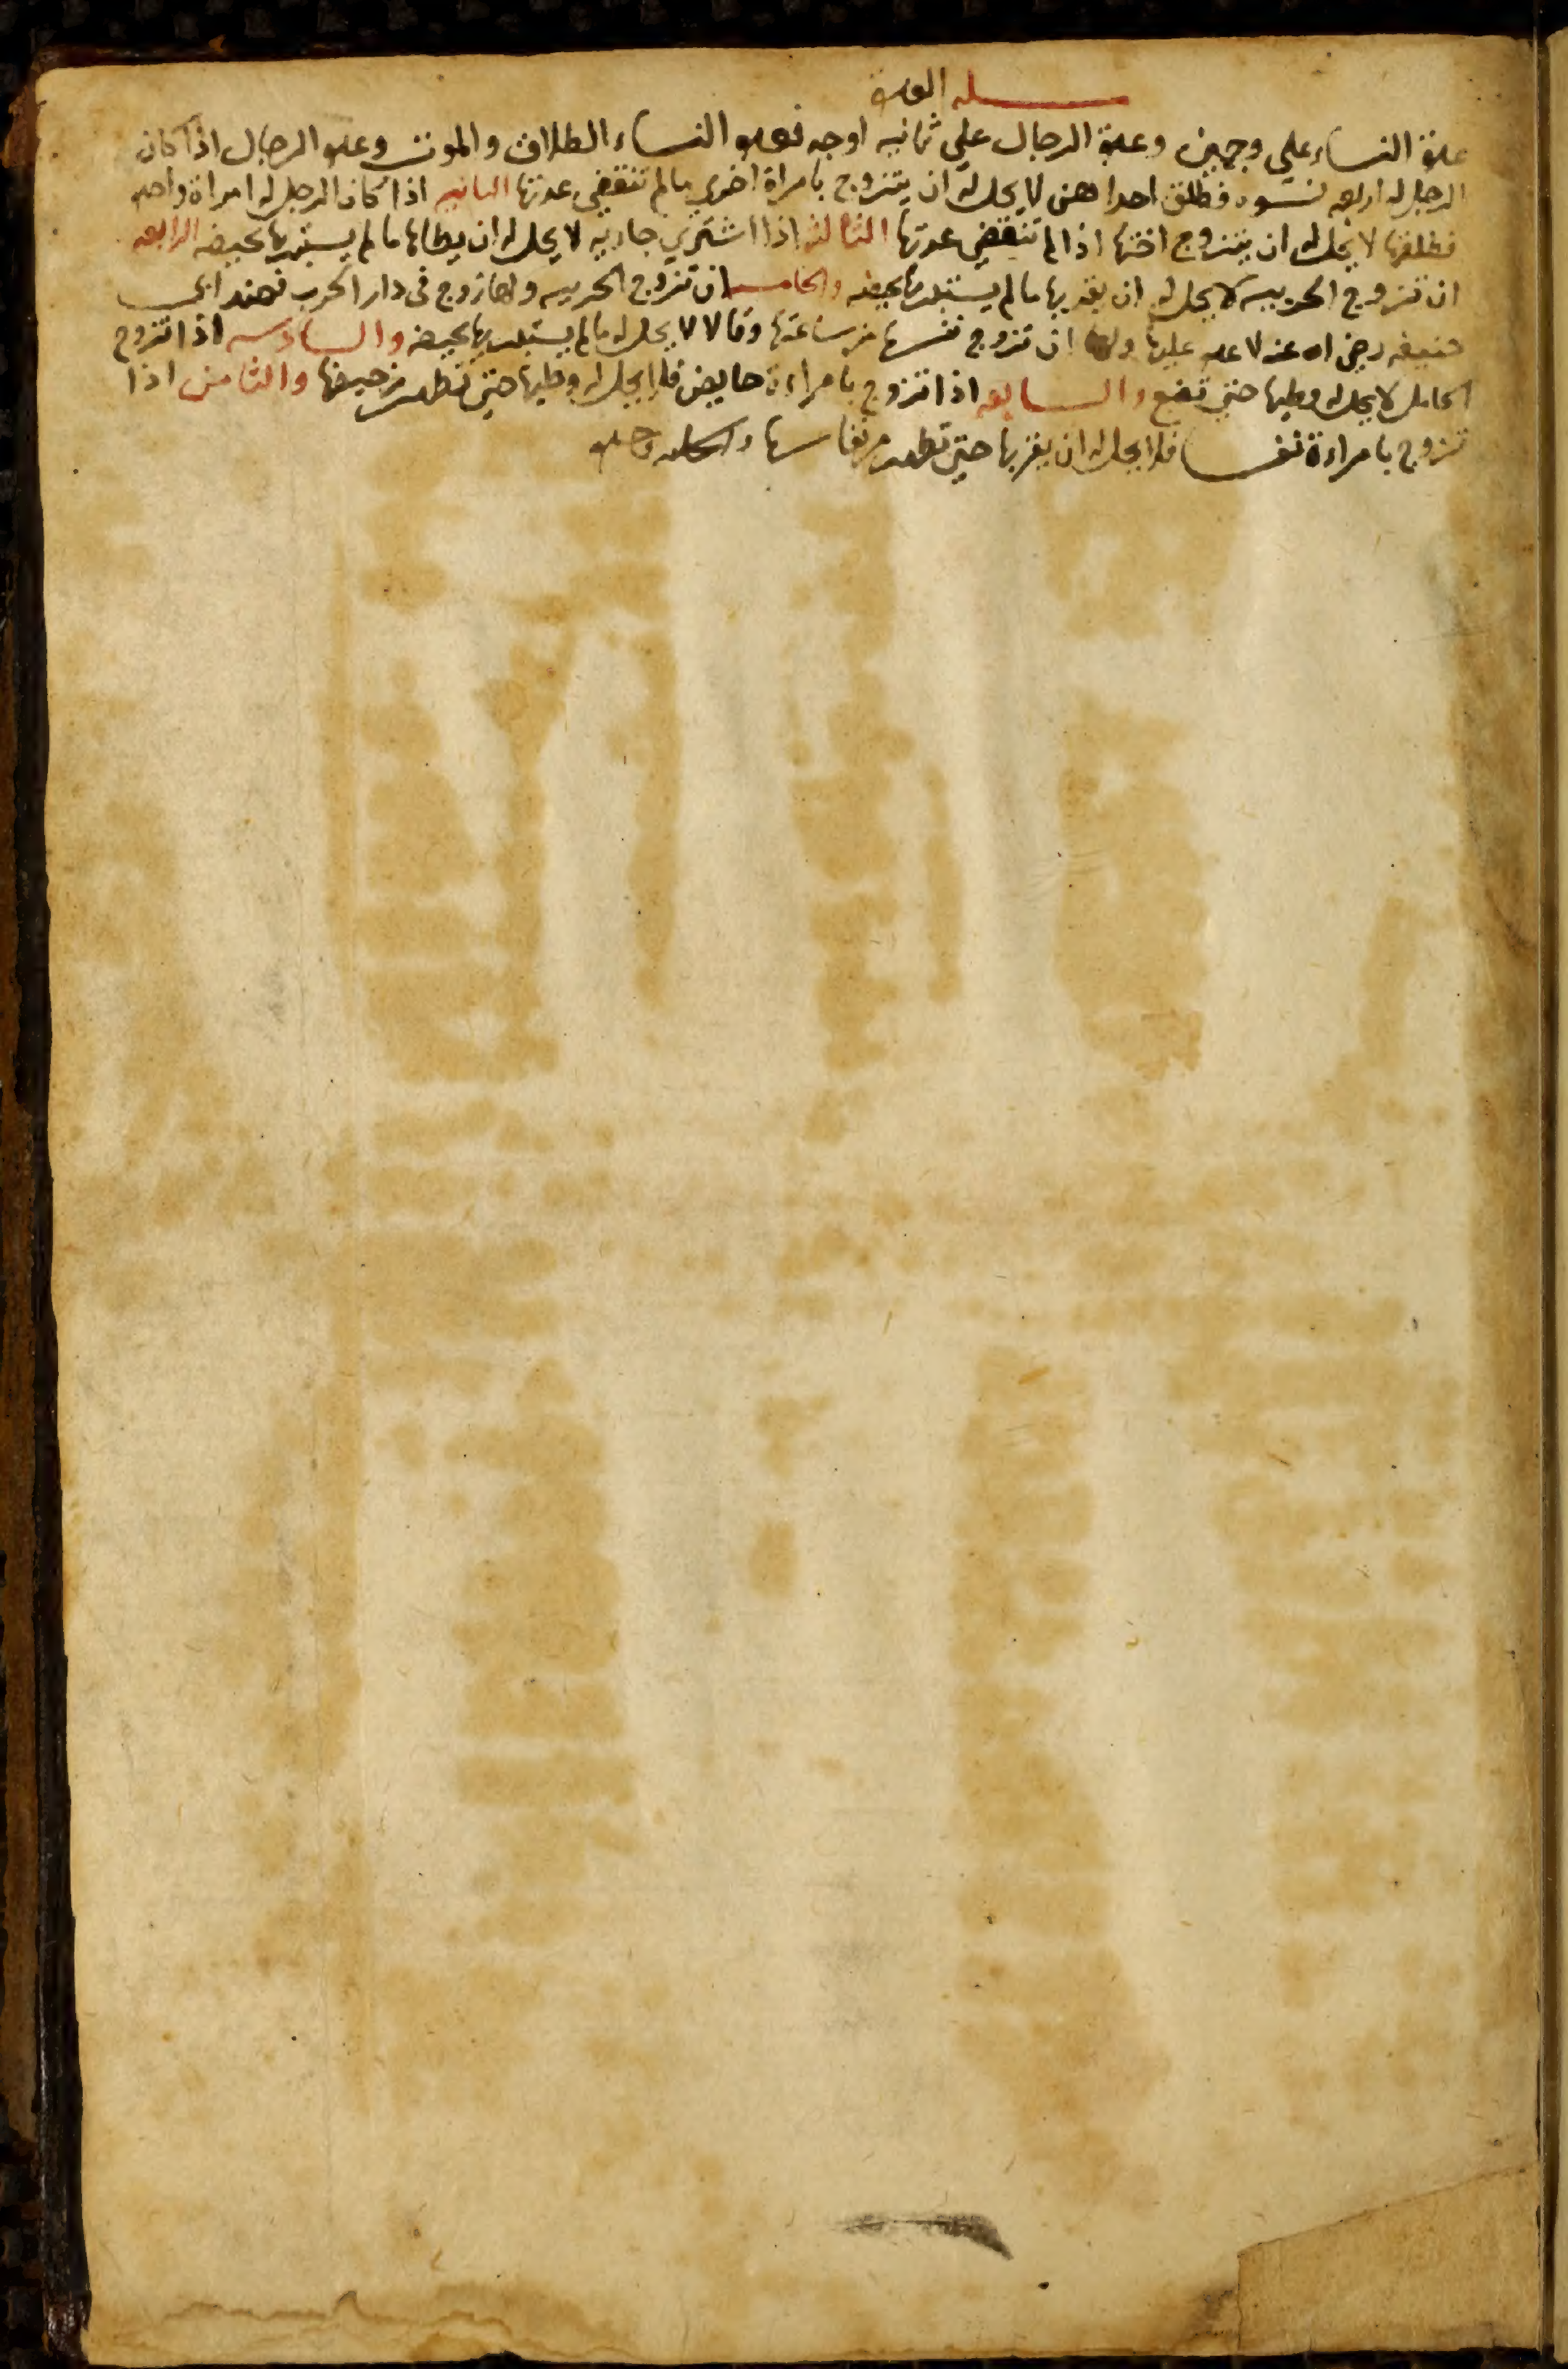 مسله العدة
عدة النساء على وجهين وعدة الرجال على ثمانيه اوجه فعدة النساء الطلاق والموت وعدة الرجال اذا كان
الرجل له اربعه نسوه فطلق احداهن لا يحل له ان يتزوج بامراة اخري مالم تنقضي عدتها الثانيه اذا كان الرجل له امراة واحده
فطلقها لا يحل له ان يتزوج اختها اذا لم تنقضي عدتها الثالثه اذا اشتري جاريه لا يحل له ان يطاها مالم يستبريها بحيضه الرابعه
ان تزوج الحربيه لا يحل له ان يقربها مالم يستبريها بحيضه والخامسه ان تزوج الحربيه ولها زوج في دار الحرب فعند ابي
حنيفه رضي اه عنه لا عده عليها ولها ان تزوج نفسها من ساعتها وقالا لا يحل له مالم يستبريها بحيضه والسادسه اذا تزوج
الحامل لا يحل له وطيها حتي تضع والسابعه اذا تزوج بامراءة حايض فلا يحل له وطيها حتي تطهر من حيضها والثامن اذا
تزوج بامراءة نفسا فلا يحل له ان يقربها حتي تطهر من نفاسها والحمد لله وحده